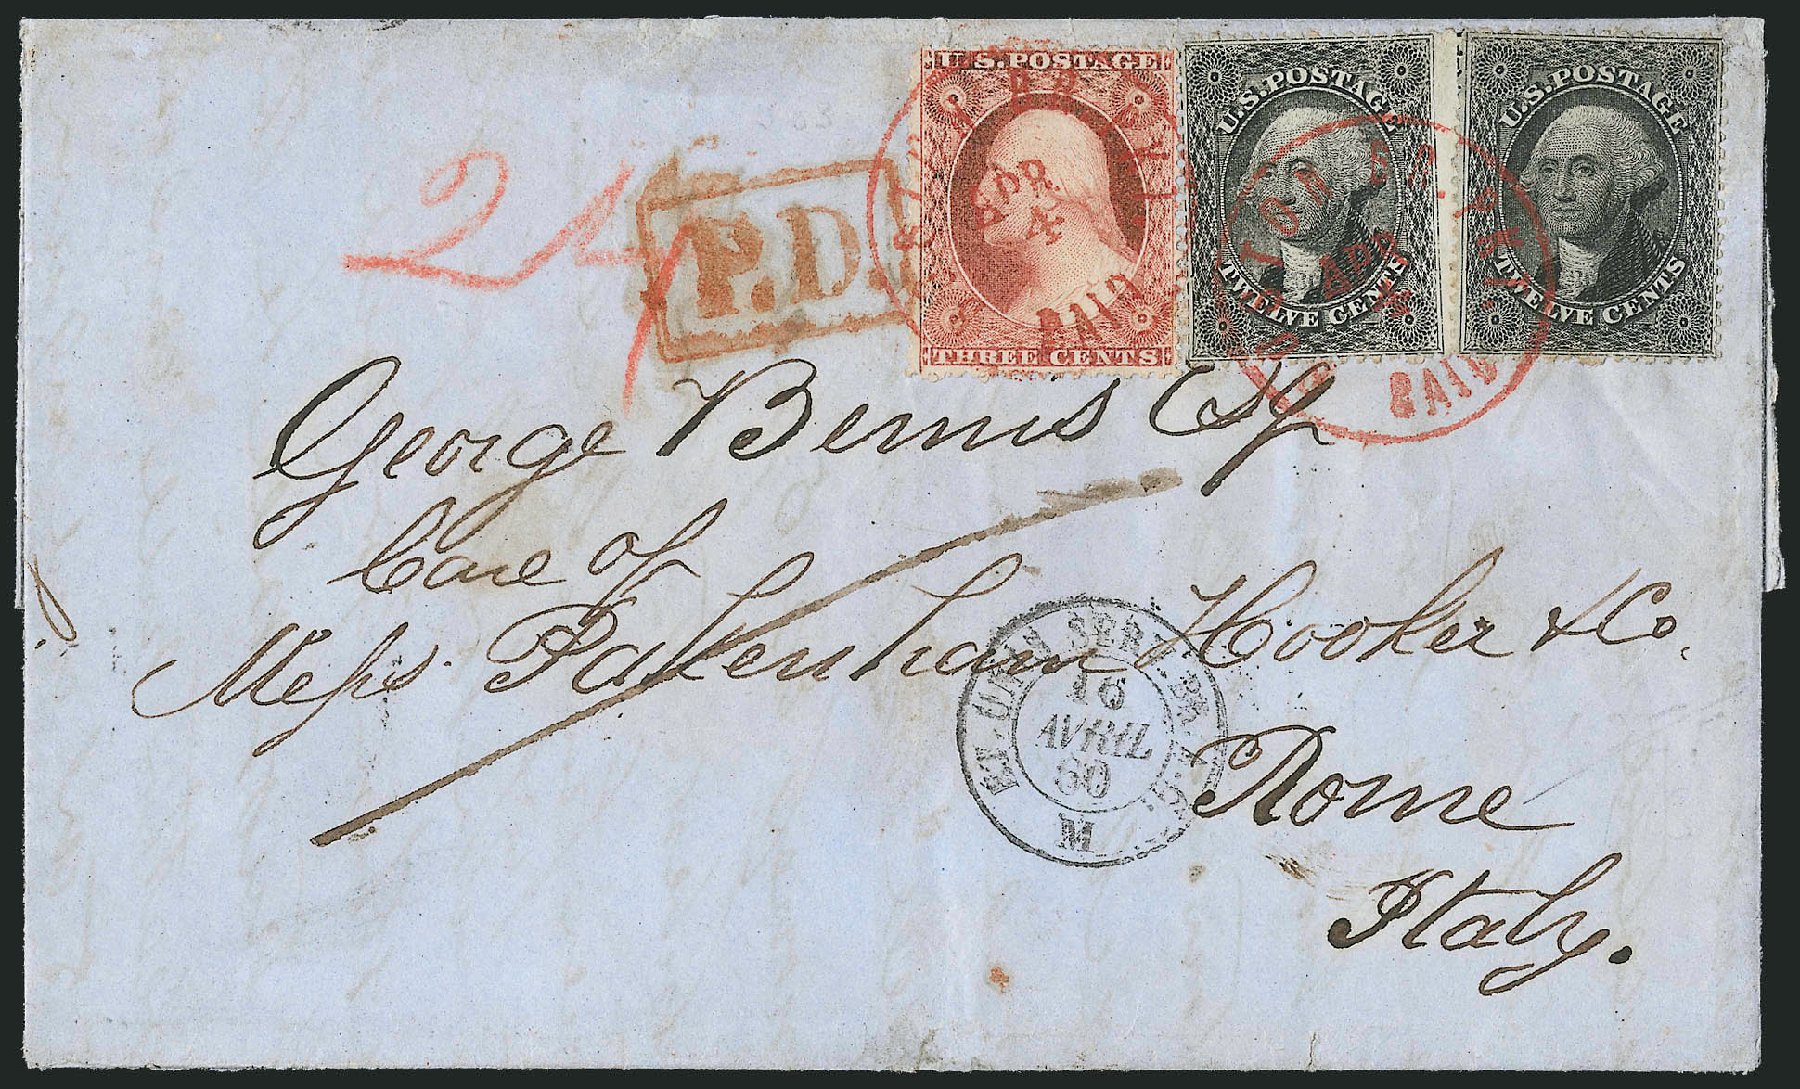 U.S. POSTAGE
THREE CENTS
U.S. POSTAGE
TWELVE CENTS
U.S. POSTAGE
TWELVE CENTS
APR
4
PAID
BR. PKT
APR
4
PAID
24
P.D.
George Bemis Esq
Care of
Mess Pakenham Hooker & Co.
Rome
Italy.
ET. UNIS SERV. BR.
16
AVRIL
60
M